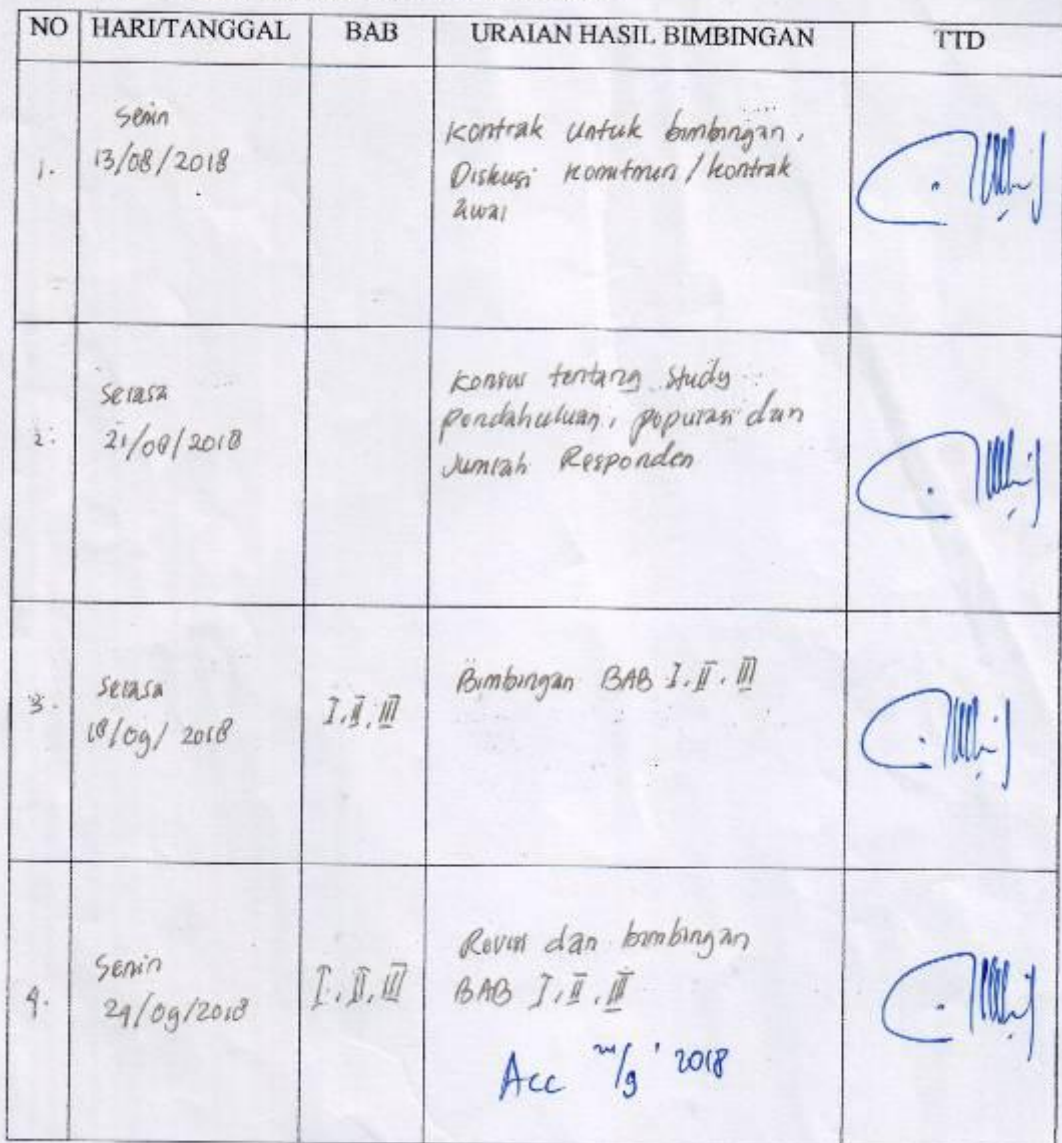 NO HARI/TANGGAL BAB URAIAN HASIL BIMBINGAN TTD
1.
Senin
13/08/2018
Kontrak untuk bimbingan,
Diskusi komitmen / kontrak
awal
2.
Selasa
21/08/2018
Konsul tentang Study
pendahuluan, populasi dan
Jumlah Responden
3.
Selasa
18/09/2018
I, II, III
Bimbingan BAB I, II, III
4.
Senin
24/09/2018
I, II, III
Revisi dan bimbingan
BAB I, II, III
Acc /9 ' 2018